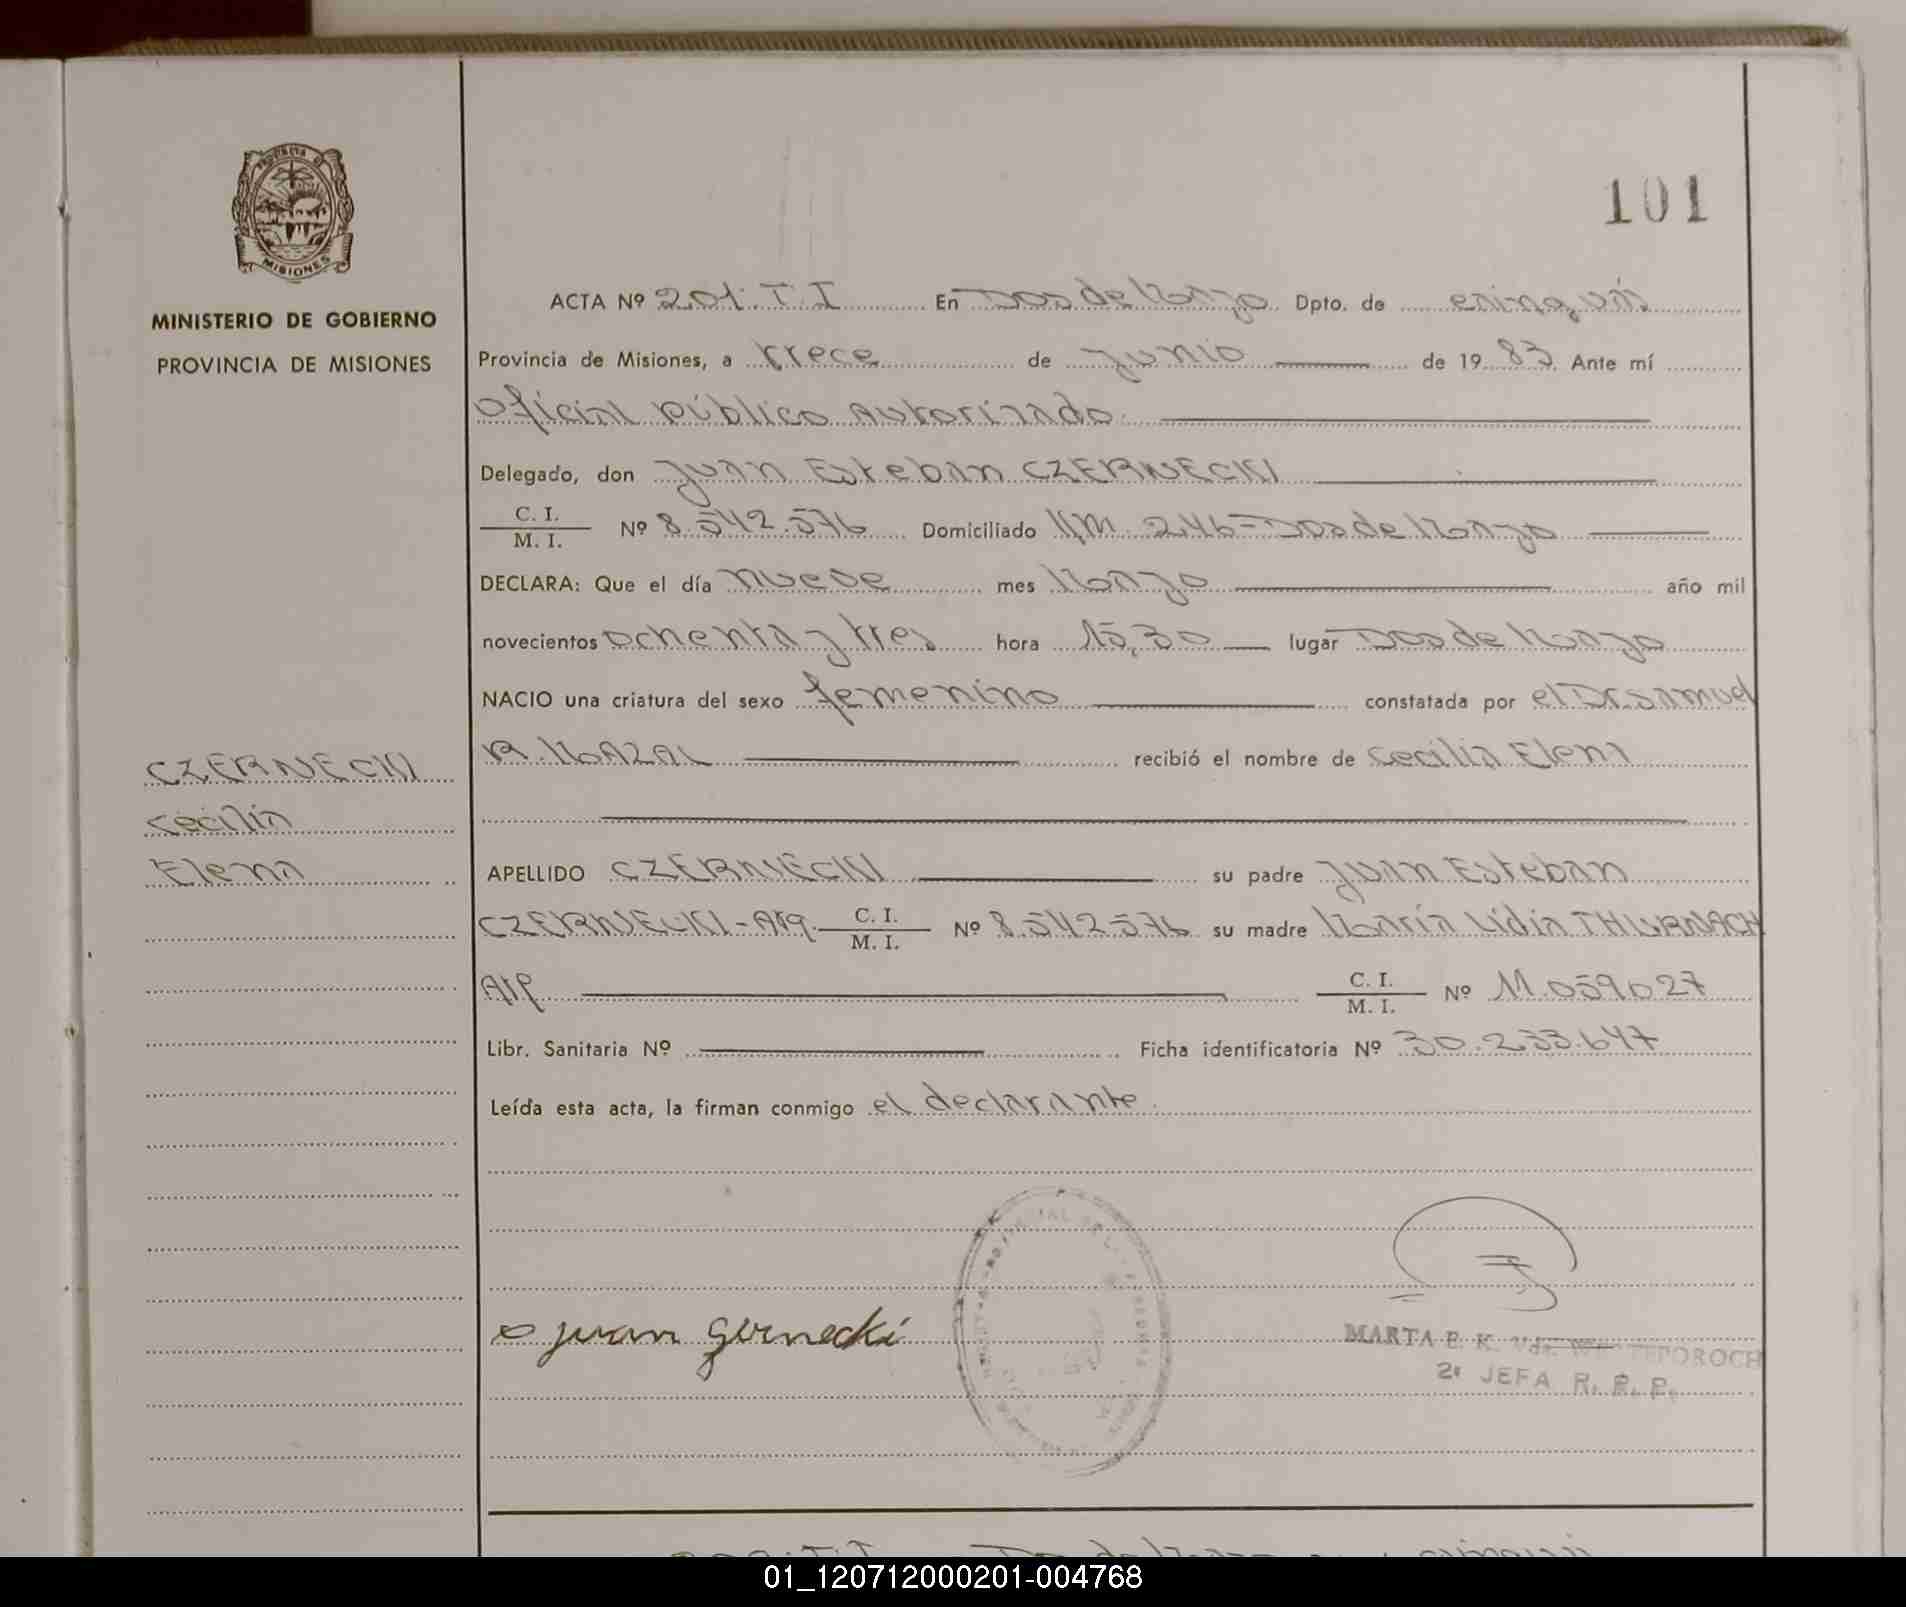 101
PROVINCIA DE
MISIONES
MINISTERIO DE GOBIERNO
PROVINCIA DE MISIONES
ACTA Nº 201. T. I En Dos de Mayo Dpto. de Cainguás
Provincia de Misiones, a trece de Junio de 1983. Ante mí
Oficial Público Autorizado
Delegado, don Juan Esteban CZERNECKI
C. I.
M. I. Nº 8.542.576 Domiciliado KM. 246-Dos de Mayo
DECLARA: Que el día nueve mes Mayo año mil
novecientos ochenta y tres hora 15,30 lugar Dos de Mayo
NACIO una criatura del sexo femenino constatada por el Dr. Samuel
R. MAZAL recibió el nombre de Cecilia Elena
CZERNECKI
Cecilia
Elena
APELLIDO CZERNECKI su padre Juan Esteban
CZERNECKI-Arg. C. I.
M. I. Nº 8.542.576 su madre María Lidia THURNACH
Arg. C. I.
M. I. Nº 11.059027
Libr. Sanitaria Nº Ficha identificatoria Nº 30.233.647
Leída esta acta, la firman conmigo el declarante.
Juan Czernecki
MARTA E. K. Vda.
2ª JEFA R. P. P.
01_120712000201-004768